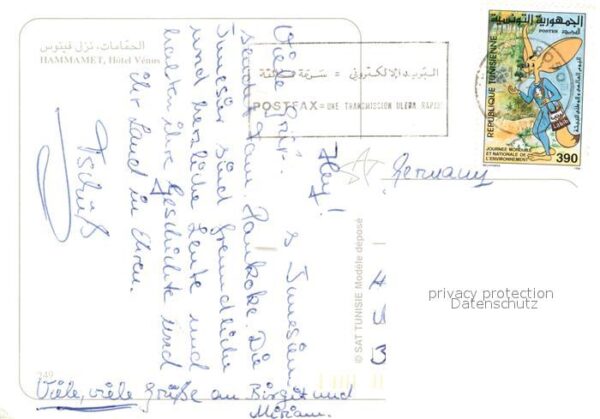 الحمامات، نزل فينوس
HAMMAMET, Hôtel Vénus
البريد الإلكتروني = سرعة فائقة
POSTFAX = UNE TRANSMISSION ULTRA RAPIDE
الجمهورية التونسية
POSTES البريد
REPUBLIQUE TUNISIENNE
JOURNEE MONDIALE
ET NATIONALE DE
L'ENVIRONNEMENT
390
Hey!
Viele Grüße
Tunesien
sendet am Die
Tunesier sind freundliche
und herzliche Leute und
halten ihre Geschichte und
ihr Land in Ehren.
Tschüß
Viele, viele Grüße an Birgit und
Miriam.
Germany
© SAT TUNISIE Modèle déposé
249
privacy protection
Datenschutz